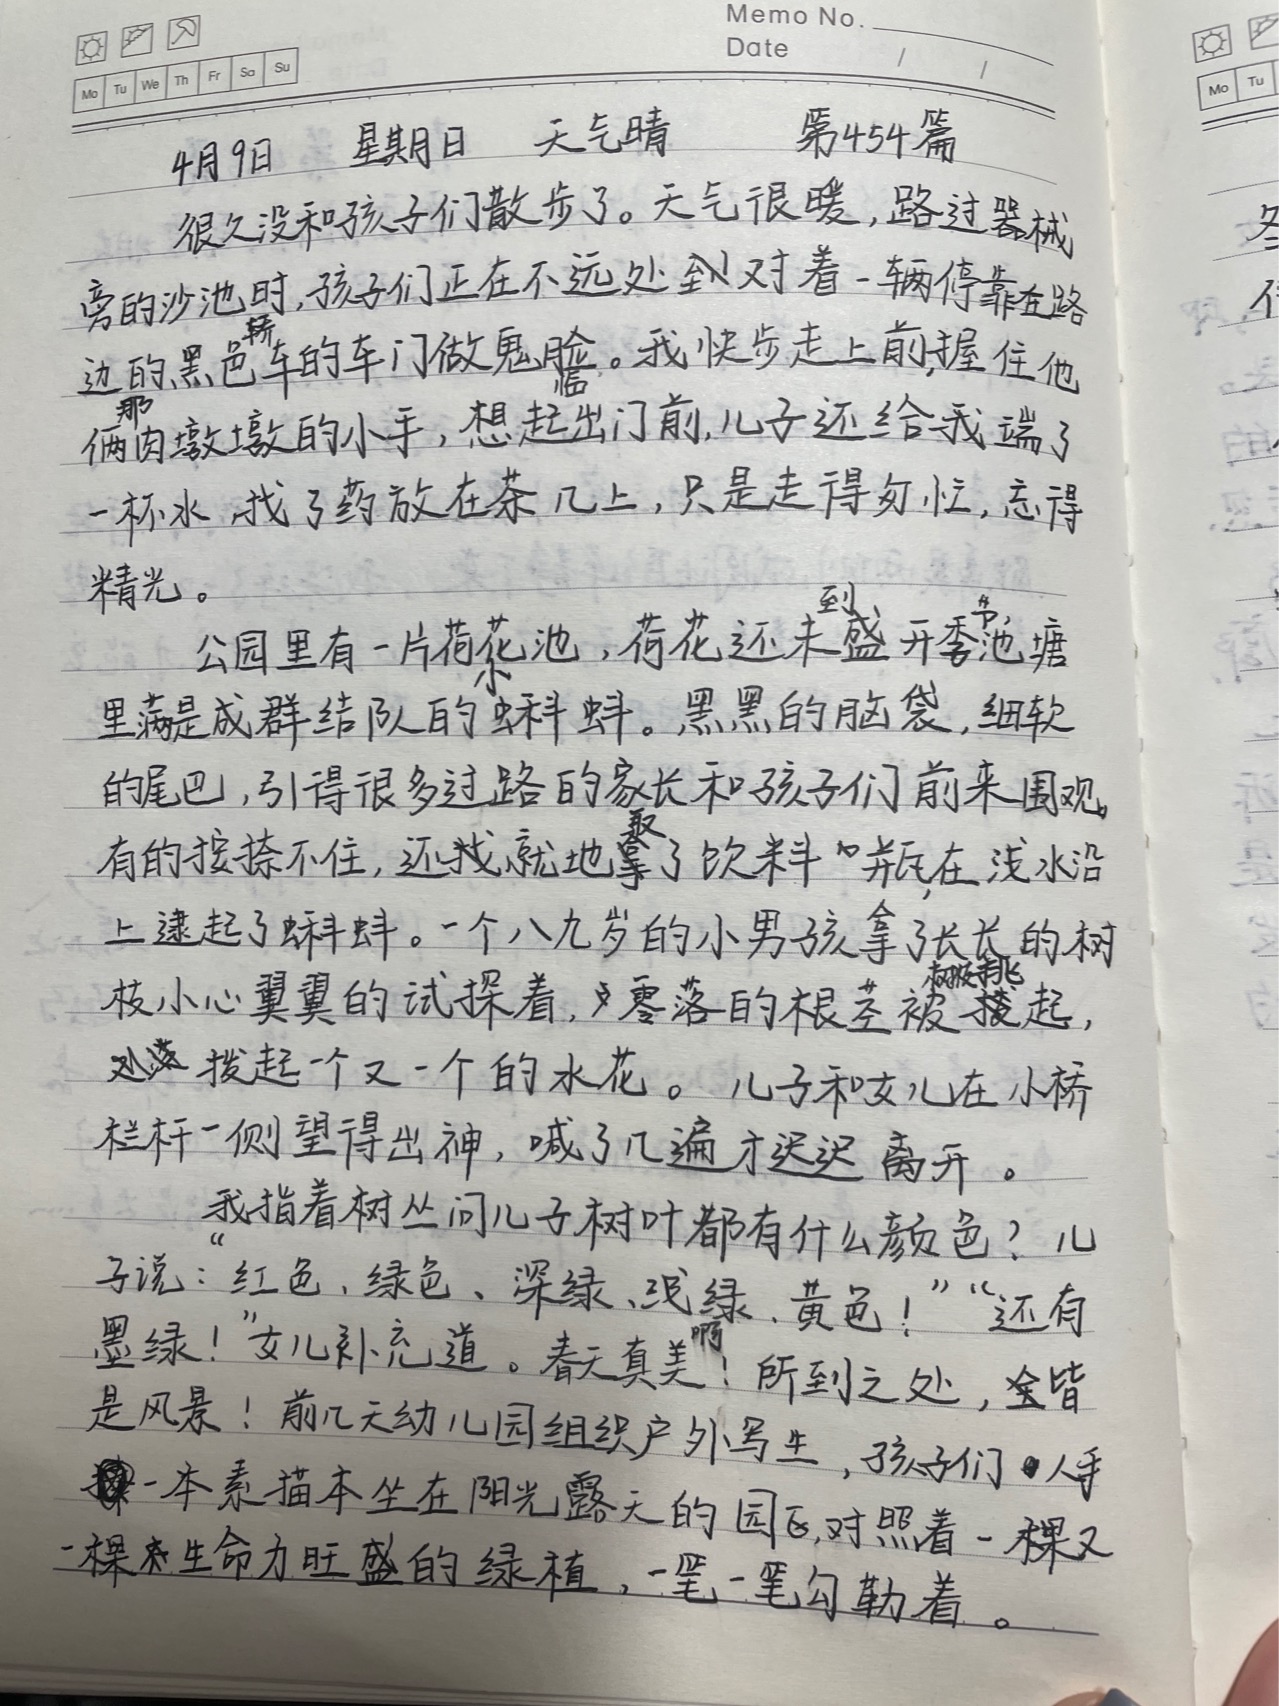 Memo No.
Date / /
Mo Tu We Th Fr Sa Su
Mo Tu
4月9日 星期日 天气晴 第454篇
很久没和孩子们散步了。天气很暖,路过器械
旁的沙池时,孩子们正在不远处到对着一辆停靠在路
边的黑色轿车的车门做鬼脸。我快步走上前,握住他
俩那肉墩墩的小手,想起临出门前,儿子还给我端了
一杯水,找了药放在茶几上,只是走得匆忙,忘得
精光。
公园里有一片荷花池,荷花还未到盛开季节,池塘
里满是成群结队的小蝌蚪。黑黑的脑袋,细软
的尾巴,引得很多过路的家长和孩子们前来围观。
有的按捺不住,还找就地取了饮料瓶,在浅水沿
上逮起了蝌蚪。一个八九岁的小男孩拿了长长的树
枝小心翼翼的试探着,零落的根茎被树枝挑起,
拨起一个又一个的水花。儿子和女儿在小桥
栏杆一侧望得出神,喊了几遍才迟迟离开。
我指着树丛问儿子树叶都有什么颜色?儿
子说:“红色、绿色、深绿、浅绿、黄色!”“还有
墨绿!”女儿补充道。春天真美啊!所到之处,全皆
是风景!前几天幼儿园组织户外写生,孩子们人手
一本素描本坐在阳光露天的园区,对照着一棵又
一棵生命力旺盛的绿植,一笔一笔勾勒着。